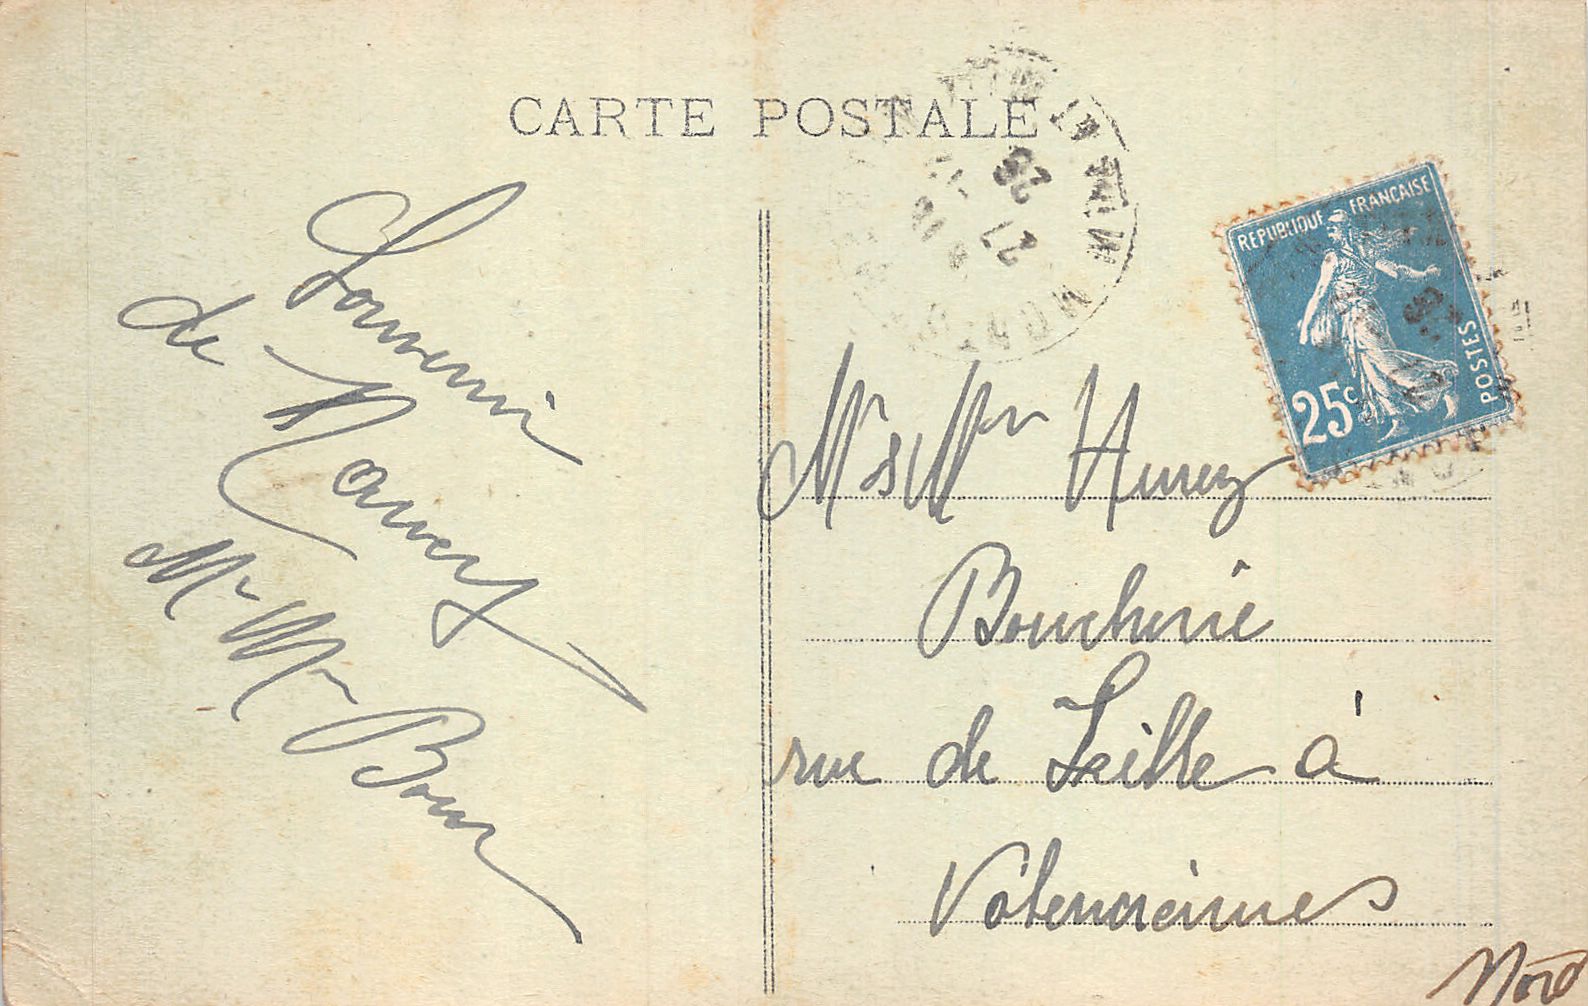 CARTE POSTALE
Souvenir
de Nancy
Mr Mme Bour
REPUBLIQUE FRANÇAISE
POSTES
25c
27
Mr & Mme Hurez
Boucherie
rue de Lille à
Valenciennes
Nord